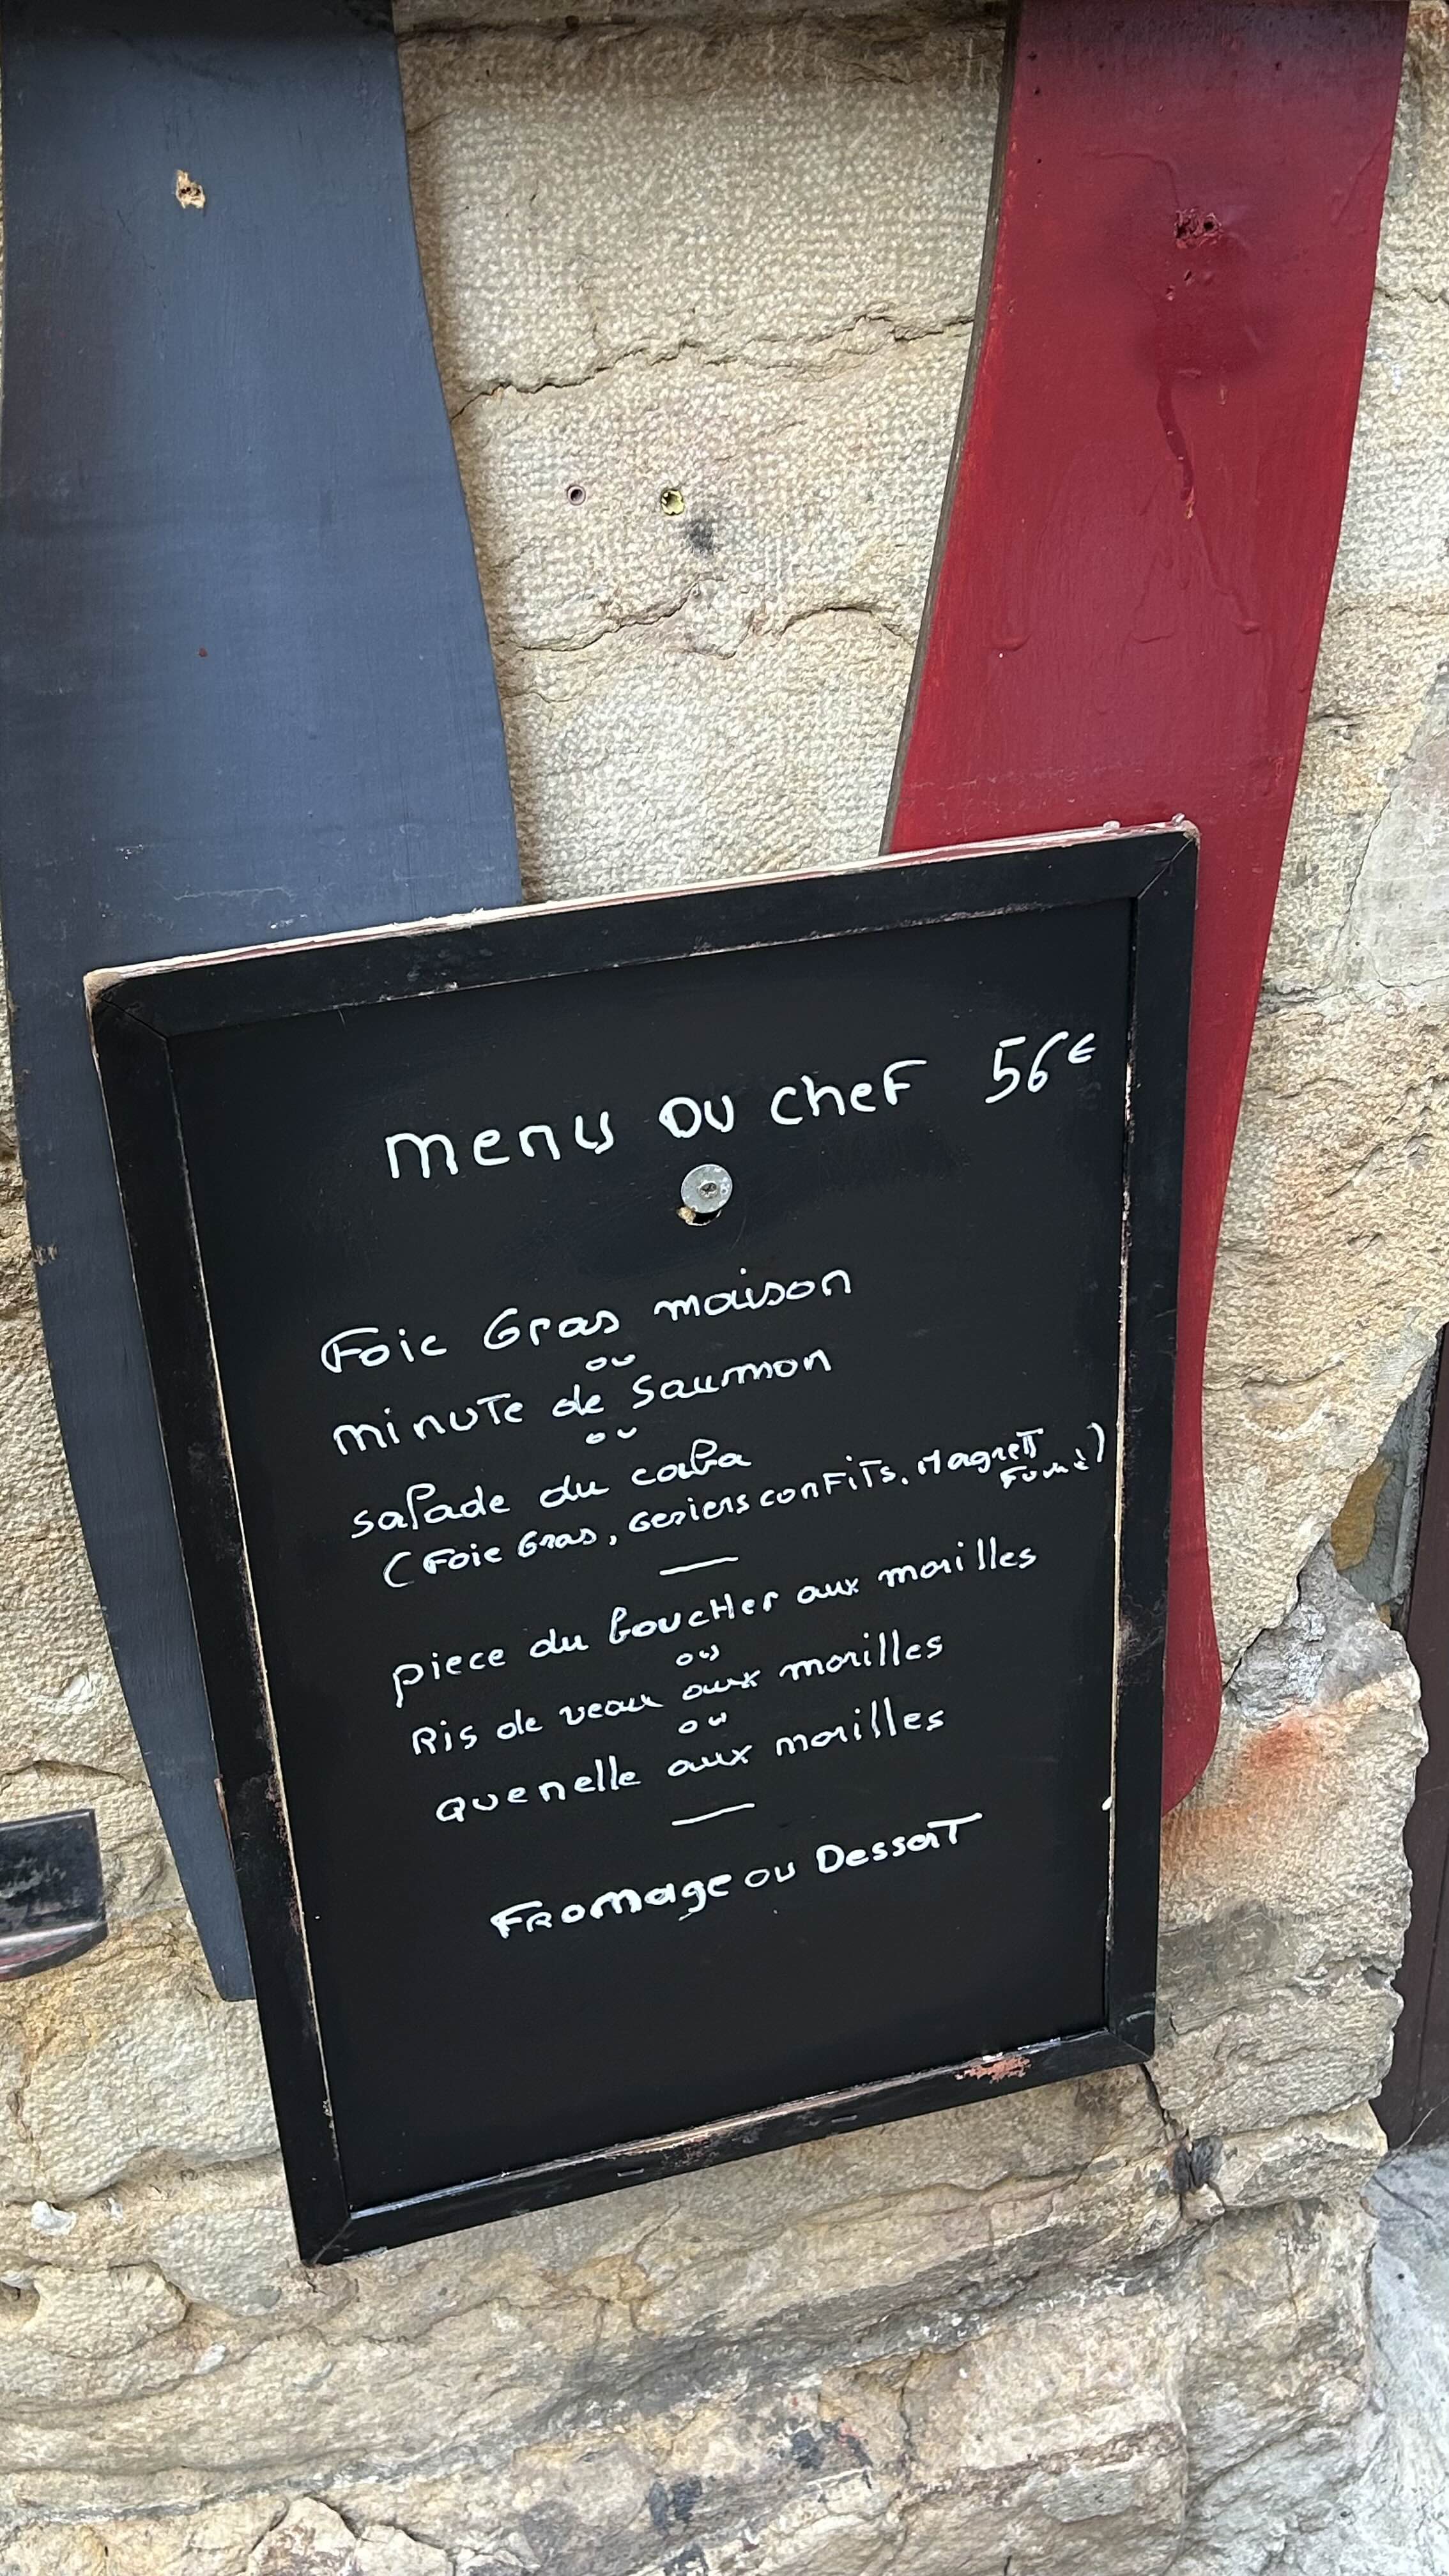 Menu DU cheF 56€
Foie Gras maison
ou
minuTe de Saumon
ou
salade du caba
(Foie Gras, Gesiers conFiTs, MagreTT
Fumé)
piece du boucHer aux morilles
ou
Ris de veau aux morilles
ou
quenelle aux morilles
FRomage ou DesserT